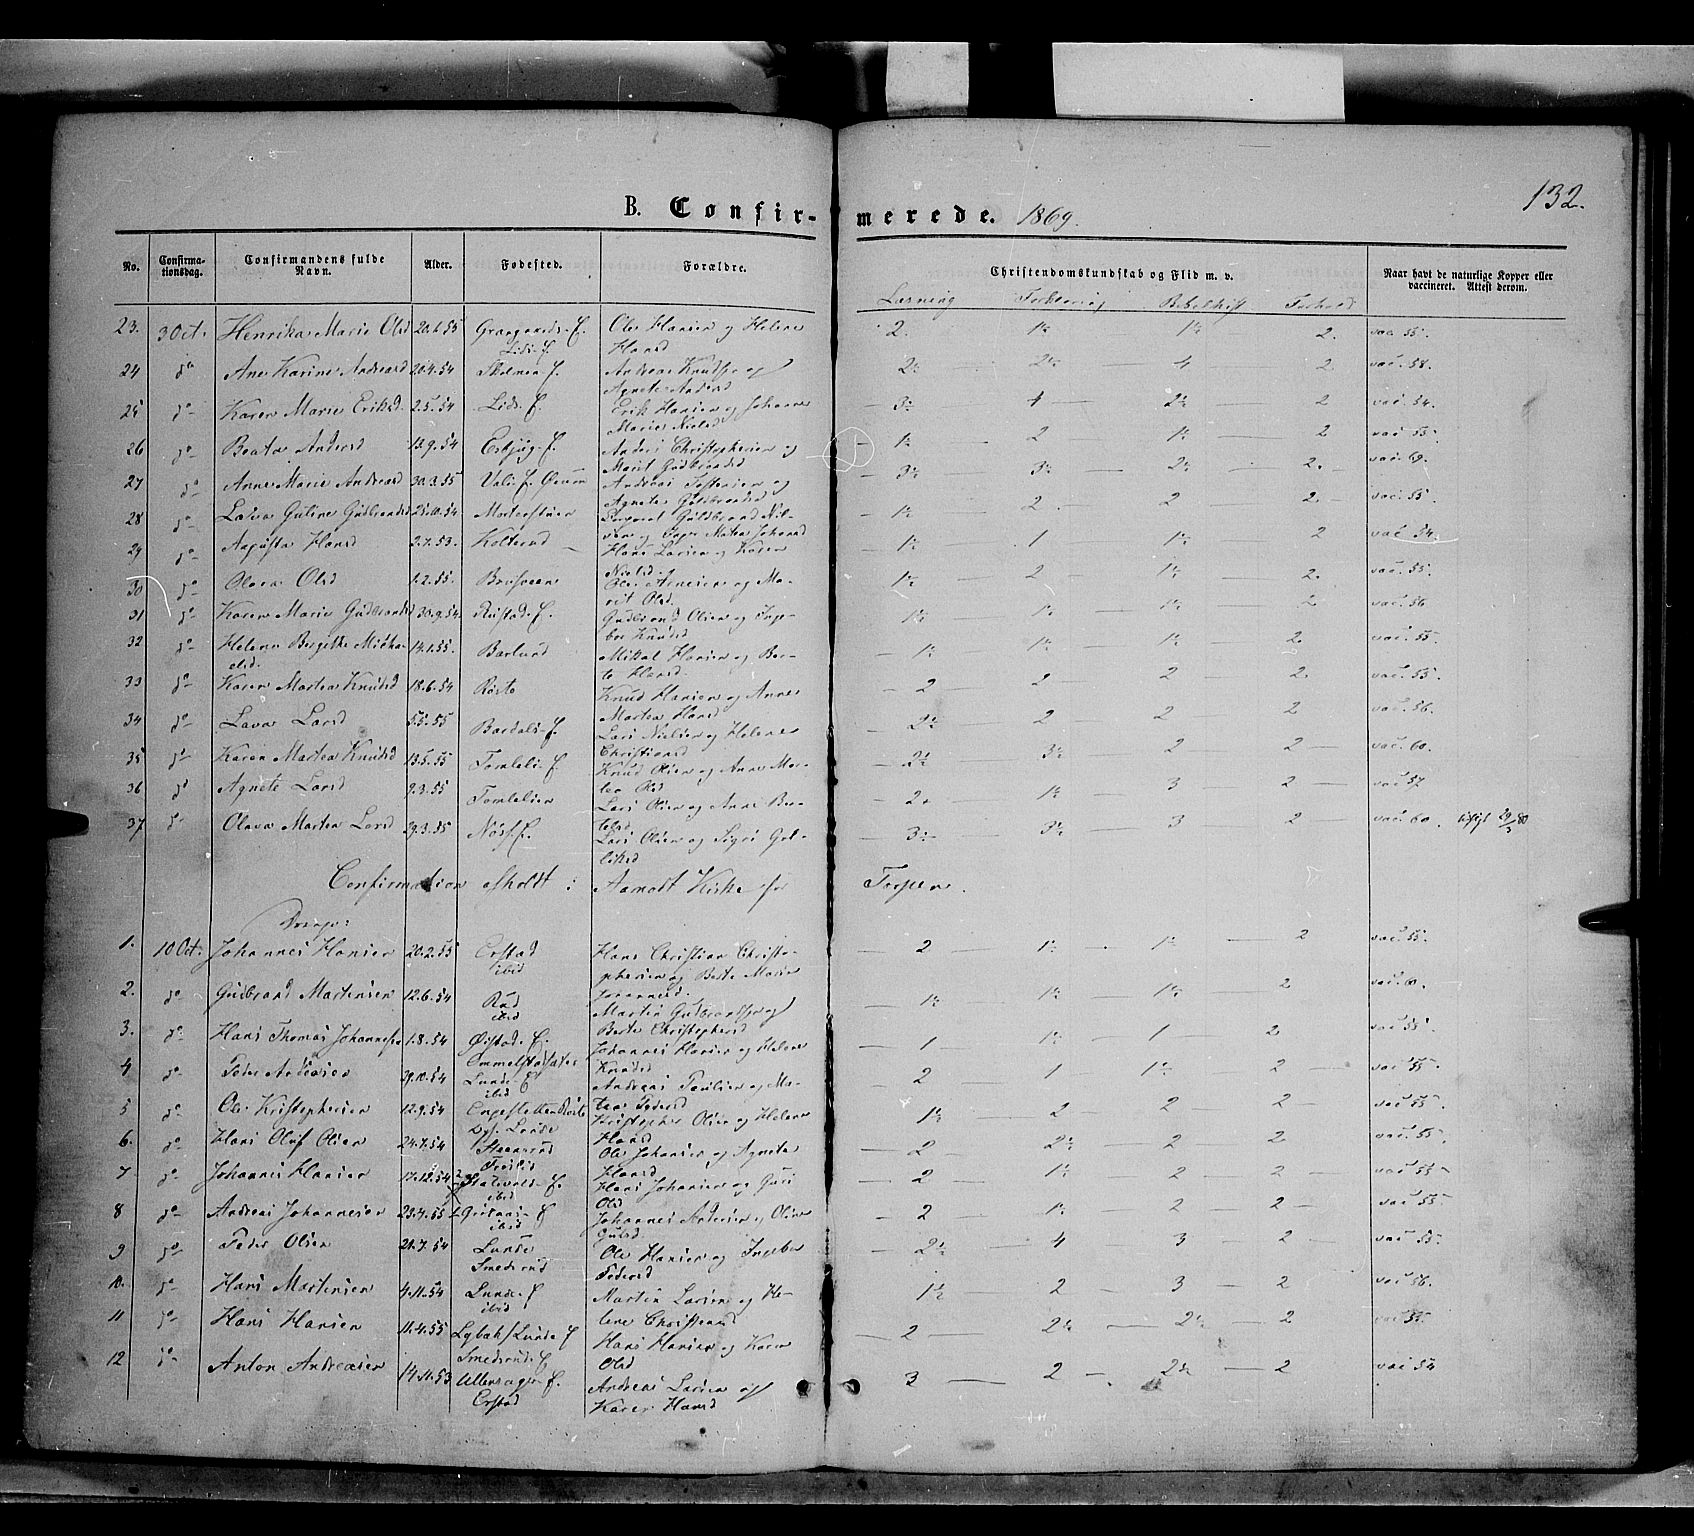 132.
B. Confir- merede. 1869.
No. Confirmationsdag. Confirmandens fulde Navn. Alder. Fødested. Forældre. Christendomskundskab og Flid m. v. Naar havt de naturlige Kopper eller vaccineret. Attest derom.
Læsning Forklaring Forhold
23. 3 Oct. Henrika Marie Olsd 20.1.55 Ole Hansen og Helene 2. 1½ 1½ 2. vac. 55.
Hansd
24 do Ane Karine Andreasd 20.4.54 Andreas Knuds og 2½ 2½ 4 2 vac. 58.
Agnete Andersd
25 do Karen Marie Eriksd. 2.5.54 Lids. E. Erik Hansen og Johanne 3½ 4 2½ 2 vac. 54.
Marie Nielsd
26 do Beate Andersd 13.9.54 Esbjug. E. Anders Christophersen og 1½ 2 1½ 2 vac. 55.
Marit Gudbrandsd
27 do Anne Marie Andreasd 30.3.55 Andreas Tostensen og 3½ 3½ 2½ 2. vac. 69.
Agnete Guldbrandsd
28 do Lava Guline Gudbrandsd 25.10.54 Guldbrand Niel- 1½ 2. 2 2. vac. 55.
sen og Johansd
29 do Augusta Hansd 2.7.53. Kolterud Hans Larsen og Karen 1½ 1 1½ 2 vac. 54.
Nielsd.
30 do Olava Olsd 1.2.55. Ole Arnesen og Ma- 1½ 2 1½ 2. vac. 55.
rit Olsd.
31 do Karen Marie Gudbrandsd 30.9.54 Rustad. E. Gudbrand Olsen og Inge- 1½ 1½ 1½ 2 vac. 56
bor Knudsd
32 do Helene Bergitte Micha- 14.1.55. Mikal Hansen og Ber- 1½ 1½ 1½ 2. vac. 55.
elsd. te Hansd.
33 do Karen Martea Knudsd 18.6.54 Røste Knud Hansen og Anne 2 2 2 2. vac. 55.
Martea Hansd
34 do Lava Larsd 5.5.55 Bardals. E. Lars Nielsen og Helene 2½ 2 2 2 vac. 56.
Christiansd
35 do Karen Martea Knudsd 13.5.55 Tomlels. E. Knud Olsen og Anne Mar- 2½ 3½ 2 2 vac. 60.
tea Olsd
36 do Agnete Larsd 9.3.55 Tomlelien Lars Olsen og Anne Ber- 2. 1½ 3 2 vac. 57
telsd
37 do Olava Martea Larsd 29.3.55 Nøss. E. Lars Olsen og Sigri 3½ 3½ 3 2 vac. 60.
Confirmation afholdt i Aamodt Kirke for Torpen.
Drenge:
1. 10 Oct. Johannes Hansen 20.2.55 Erstad Hans Christian Christo- 2 1½ 1½ 2 vac. 55.
ibid phersen og Berte Marie
Johannesd.
2. do Gudbrand Martensen 12.6.54 Rud Martin Gudbrands og 1½ 1½ 1½ 2 vac. 60.
ibid Berte Christophersd
3. do Hans Thomas Johanness 1.8.54 Øistad. E. Johannes Hansen og Helene 1 1½ 1 2 vac. 55.
Knudsd
4 do Peder Andersen 29.10.54 Lunde E Andreas Paulsen og Ma- 2 1 1½ 2 vac. 55.
ibid tea Pedersd
5 do Ole Kristophersen 12.9.54 Kristopher Olsen og Helene 1½ 2 2 2 vac. 55.
Lunde Hansd
6. do Hans Oluf Olsen 24.7.54 Ole Johansen og Agnete 2 2½ 2 2 vac. 55.
Hansd
7 do Johannes Hansen 17.12.54 Hans Johansen og Guri 2 1½ 2 2 vac. 55
ibid Olsd
8 do Andreas Johannesen 23.4.55 Johannes Andersen og Oline 2 1½ 2 2 vac. 55
ibid
9 do Peder Olsen 21.7.54 Lunde Ole Hansen og Ingebor 2½ 4 3 2 vac. 55.
Smedsrud Pedersd
10. do Hans Martensen 4.11.54 Lunde. E Martin Larsen og He- 1½ 2 3 2 vac. 56.
ibid lene Christensd
11 do Hans Hansen 11.4.55 Lybæk Lunde E Hans Hansen og Karen 2 2½ 2½ 2 vac. 55.
Smedsrud. E Olsd
12 do Anton Andreasen 14.11.53 Ullensager. E. Andreas Larsen og 3 2 2½ 2 vac 54
Erstad Karen Hansd